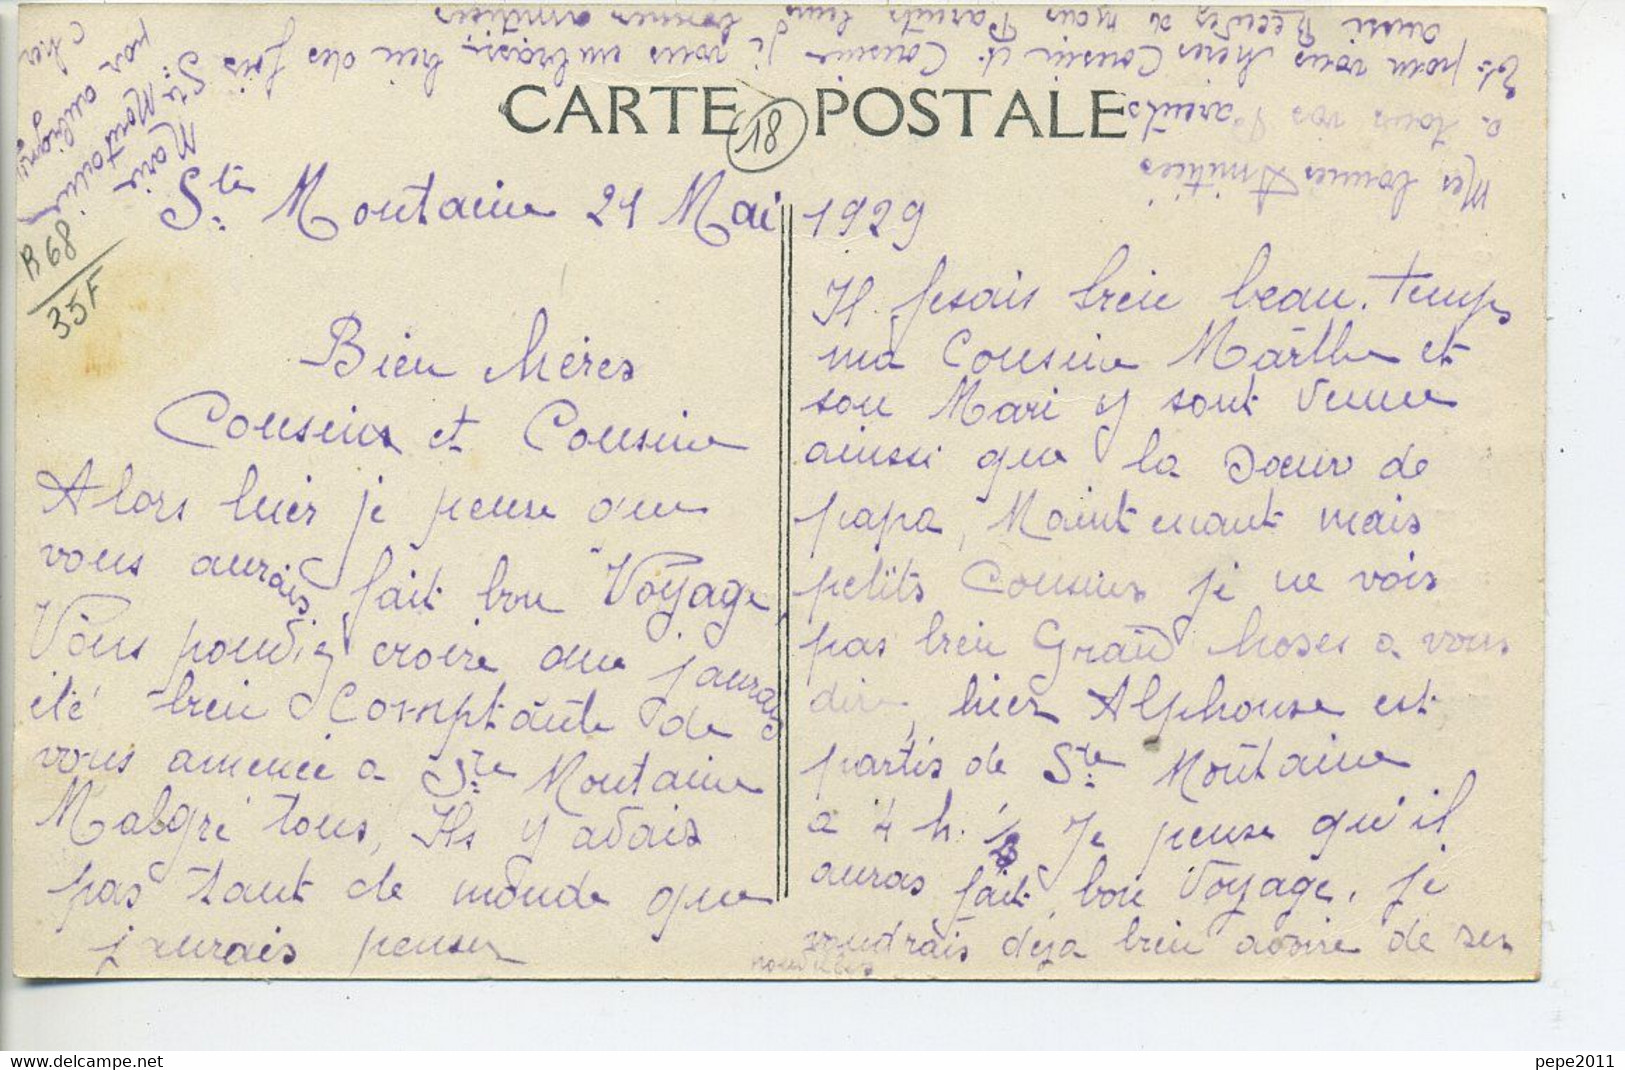 CARTE POSTALE
18
B 68
35F
Ste Montaine 21 Mai 1929
Bien hères
Cousins et Cousine
Alors hier je pense que
vous aurais fait bon Voyage
Vous pouviez croire que jaurais
été bien Comptante de
vous amenée a Ste Montaine
Malgré tous, Ils y avais
pas tant de monde que
jaurais penser
Il fesais bien beau. temps
ma Cousine Marthe et
son Mari y sont venue
ainssi que la Sœur de
papa, Maintenant mais
petits Cousins je ne vois
pas bien Grand hoses a vous
dire, hier Alphonse est
partis de Ste Montaine
a 4 h. 1/2 Je pense qu'il
auras fait bon Voyage, je
voudrais deja bien avoire de ses
nouvelles
Mes bonnes Amitiées
a tous vos Parents
Et pour vous hères Cousin et Cousine je vous embrasse bien des fois
aussi Recevez de mais Parents leurs bonnes amitiées
Marie
Ste Montaine
par aubigny
Cher
www.delcampe.net
pepe2011